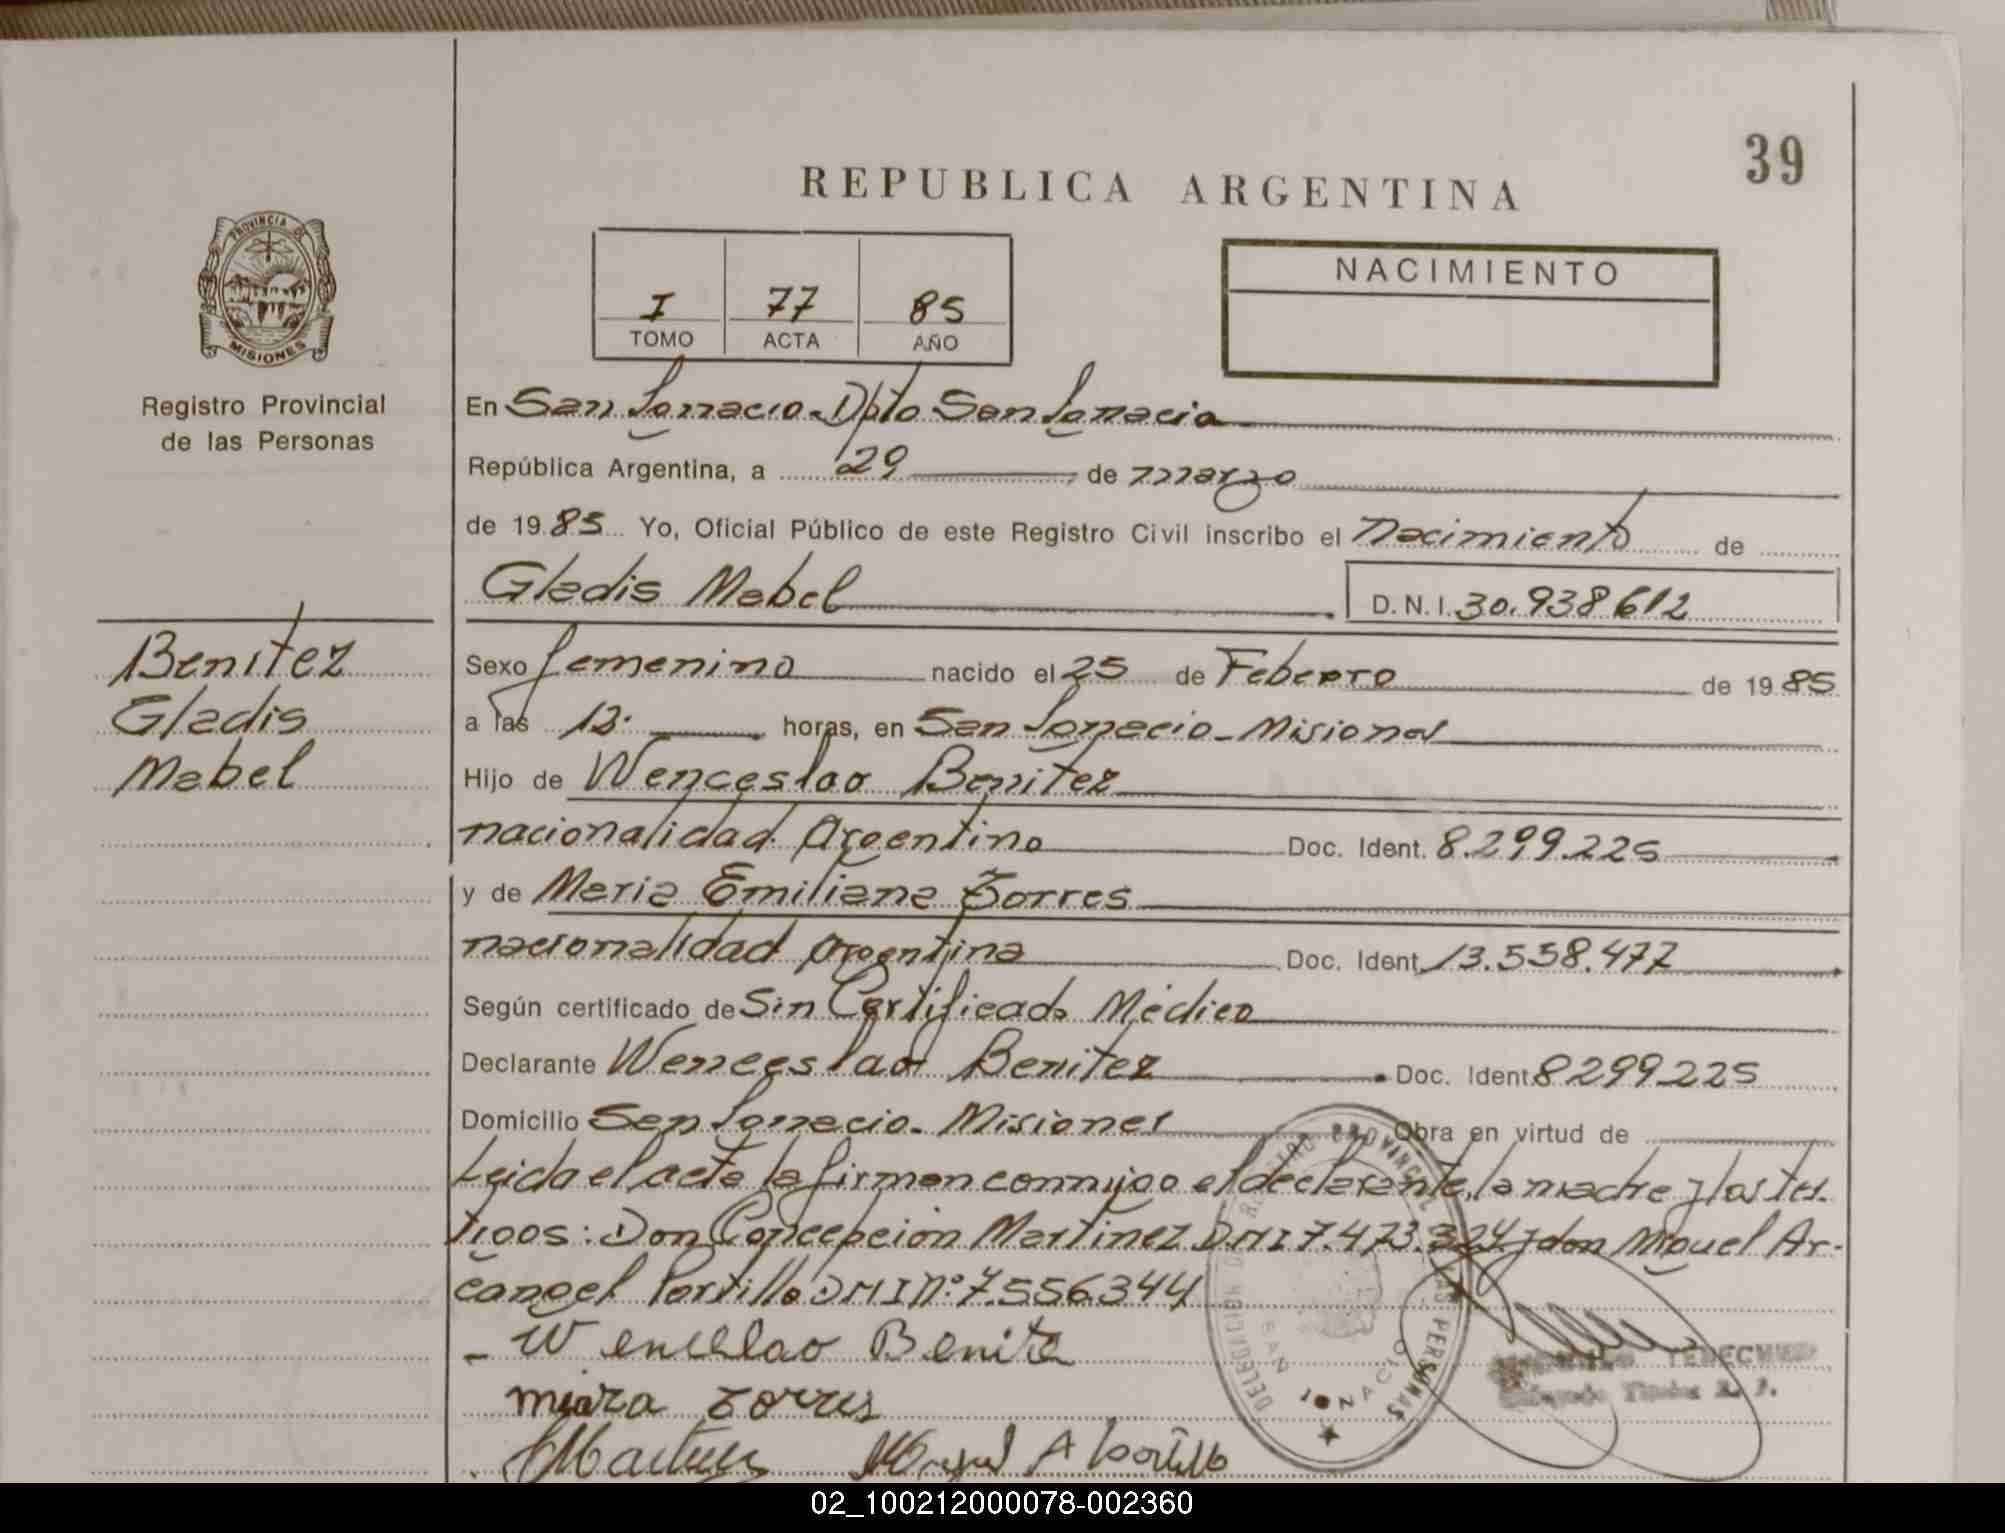 39
REPUBLICA ARGENTINA
PROVINCIA DE
MISIONES
Registro Provincial
de las Personas
I 77 85
TOMO ACTA AÑO
NACIMIENTO
En San Ignacio - Dpto San Ignacio
República Argentina, a 29 de marzo
de 1985 Yo, Oficial Público de este Registro Civil inscribo el Nacimiento de
Gladis Mabel D.N.I. 30.938.612
Benitez
Gladis
Mabel
Sexo femenino nacido el 25 de Febrero de 1985
a las 12. horas, en San Ignacio - Misiones
Hijo de Wenceslao Benitez
nacionalidad Argentino Doc. Ident. 8.299.225
y de Maria Emiliana Torres
nacionalidad Argentina Doc. Ident. 13.558.477
Según certificado de Sin Certificado Médico
Declarante Wenceslao Benitez Doc. Ident. 8299225
Domicilio San Ignacio - Misiones Obra en virtud de
Leida el acta la firman conmigo el declarante, la madre y los tes-
tigos: Don Concepción Martinez DNI 7.473.324 y don Miguel Ar-
cangel Portillo DNI Nº 7.556344
- Wencelao Benite
miara torres
Miguel A Portillo
DELEGACION REGISTRO PROVINCIAL DE LAS PERSONAS
SAN IGNACIO
02_100212000078-002360